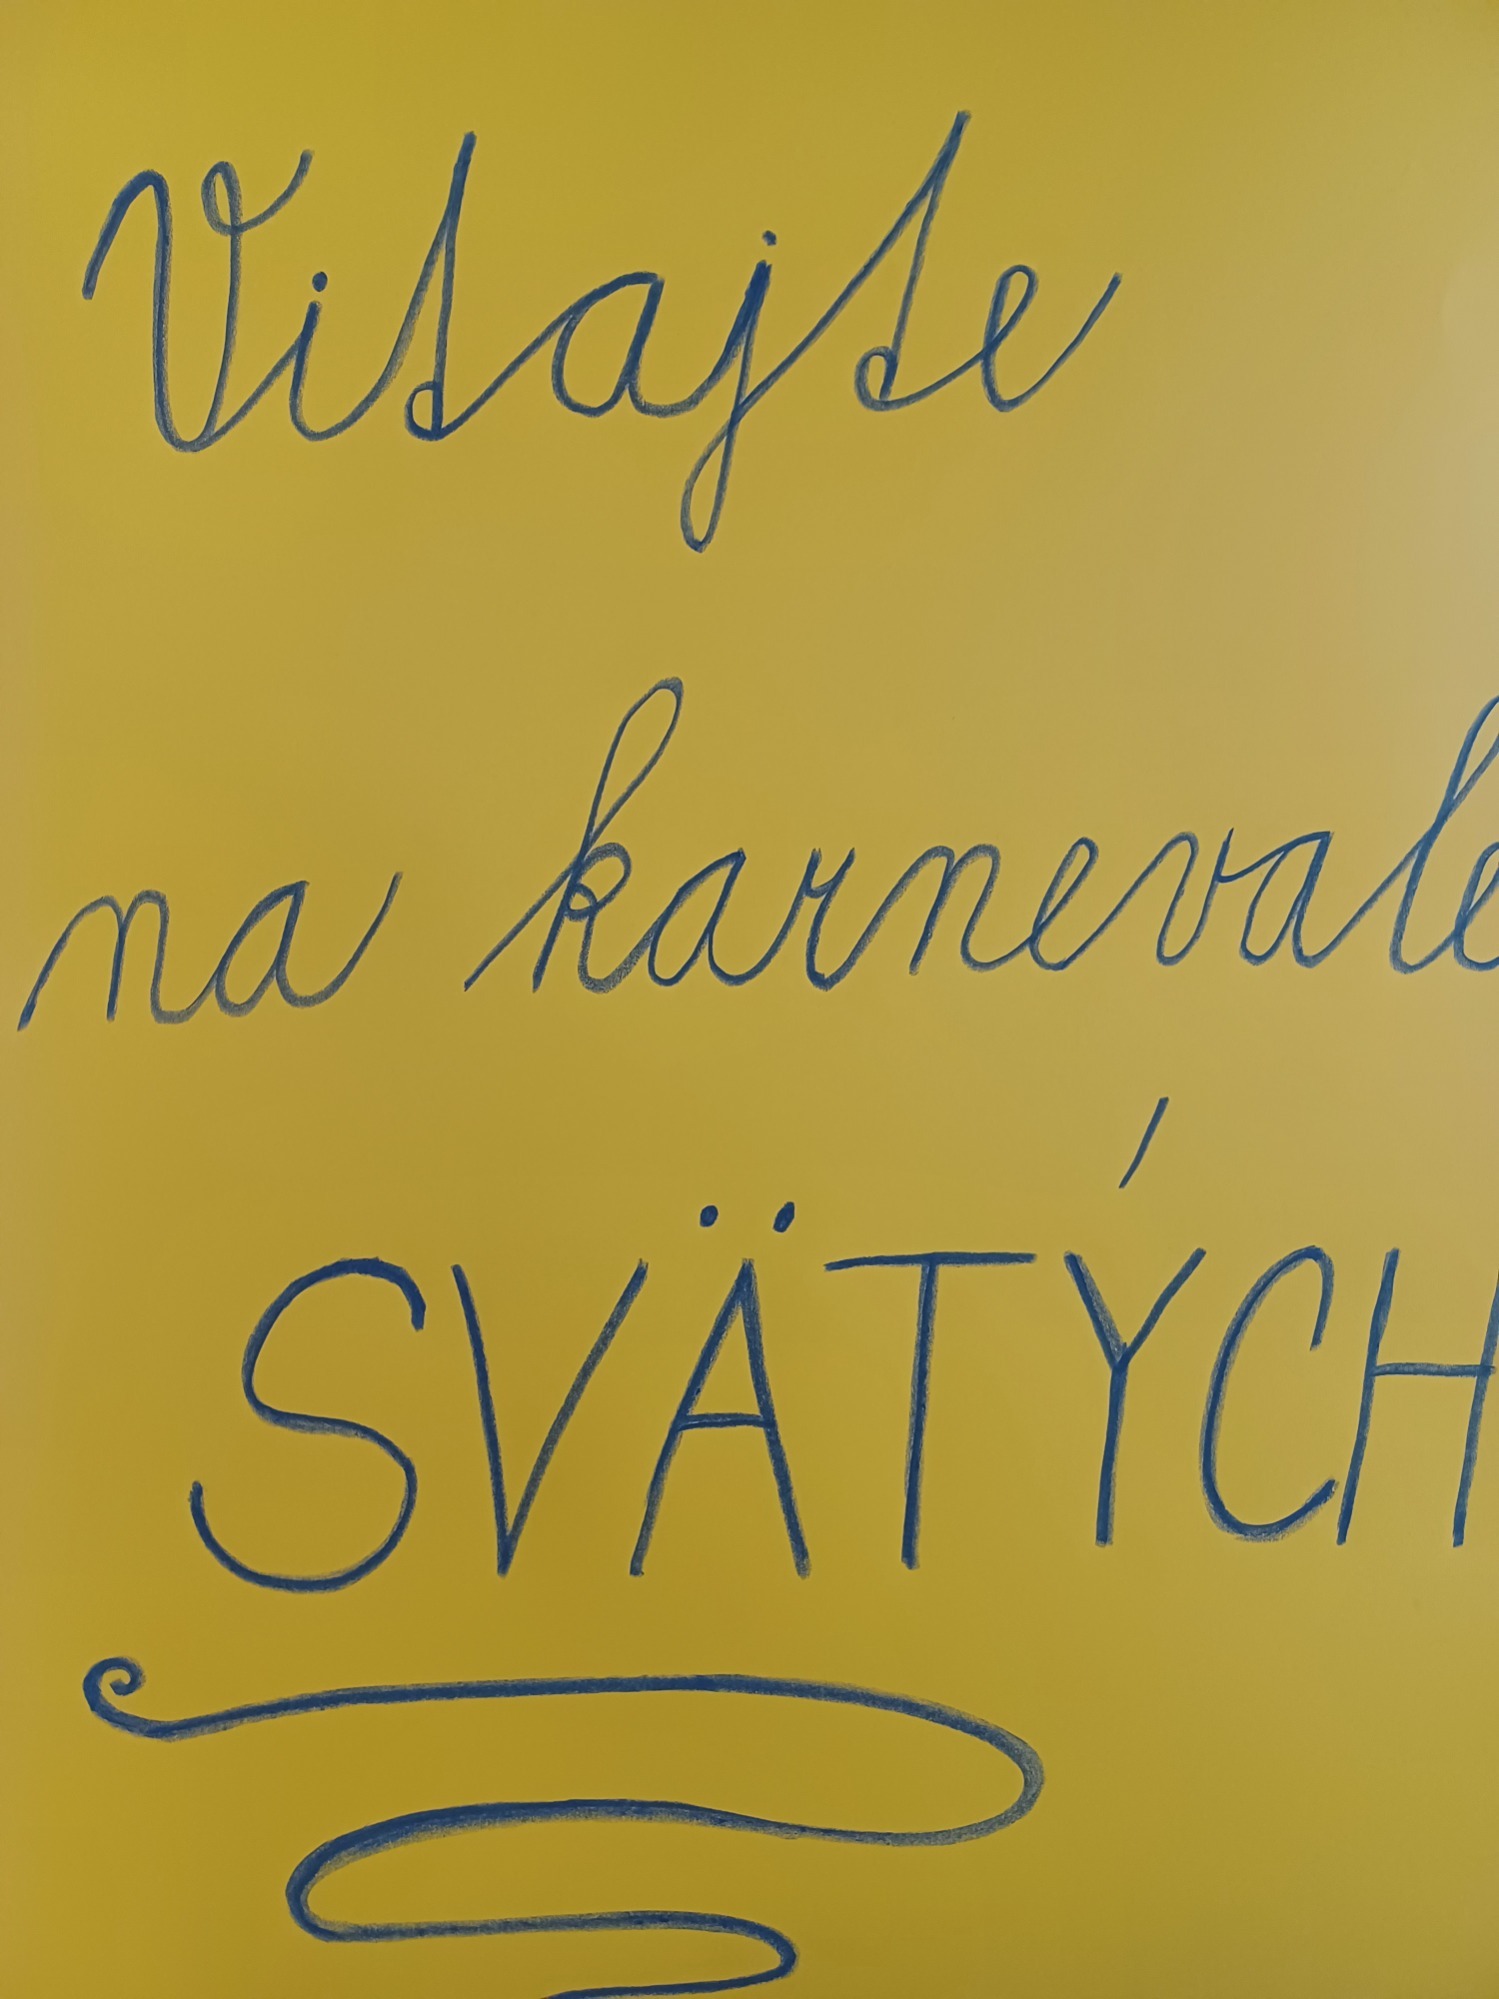 Vitajte
na karnevale
SVÄTÝCH